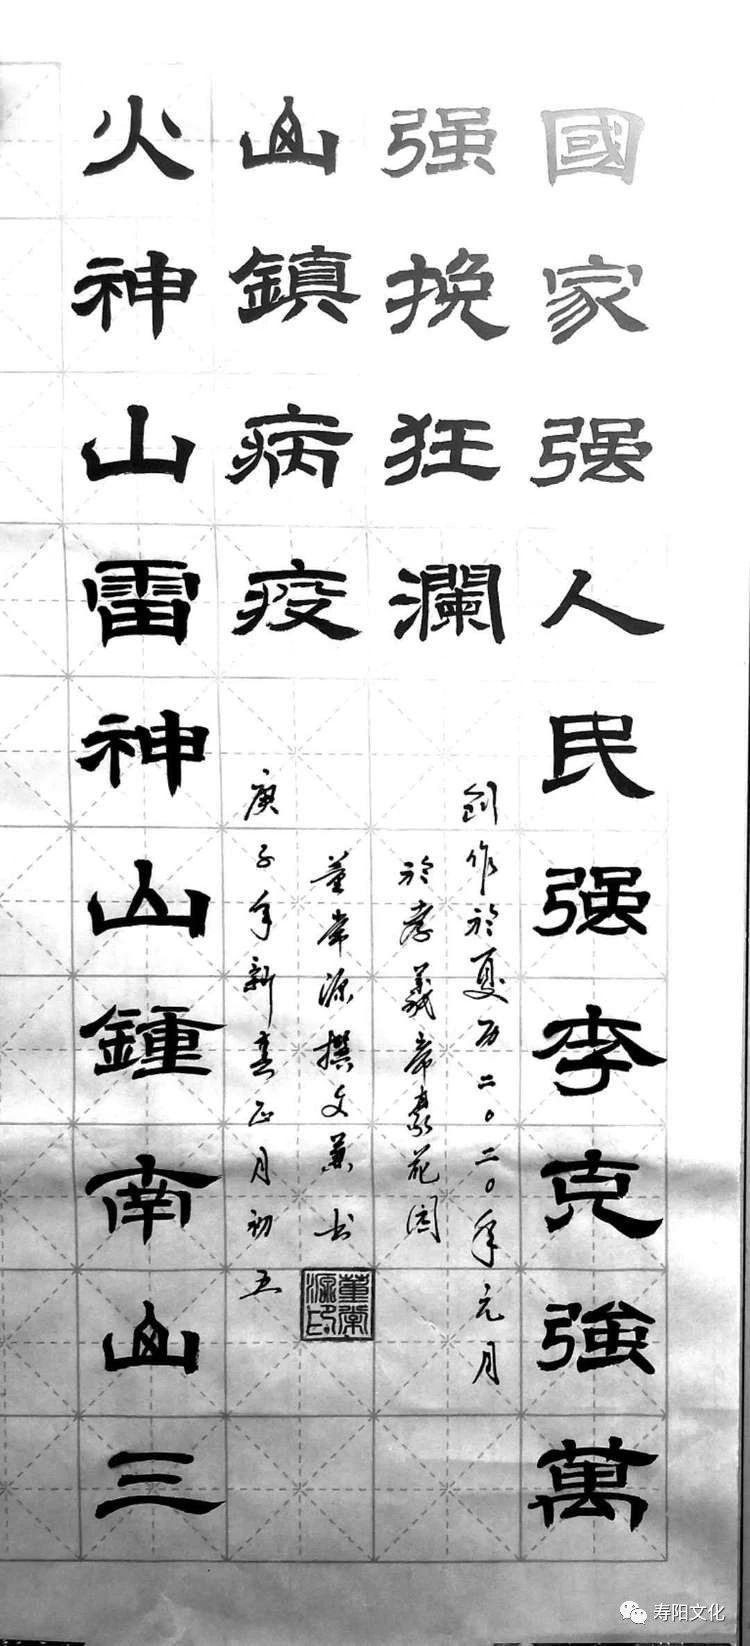 國家强人民强李克強萬
强挽狂瀾
创作於夏历二〇二〇年元月
於孝義常豪花园
火神山雷神山鍾南山三
山鎮病疫
庚子年新春正月初五
董常源撰文兼书
董常源印
寿阳文化